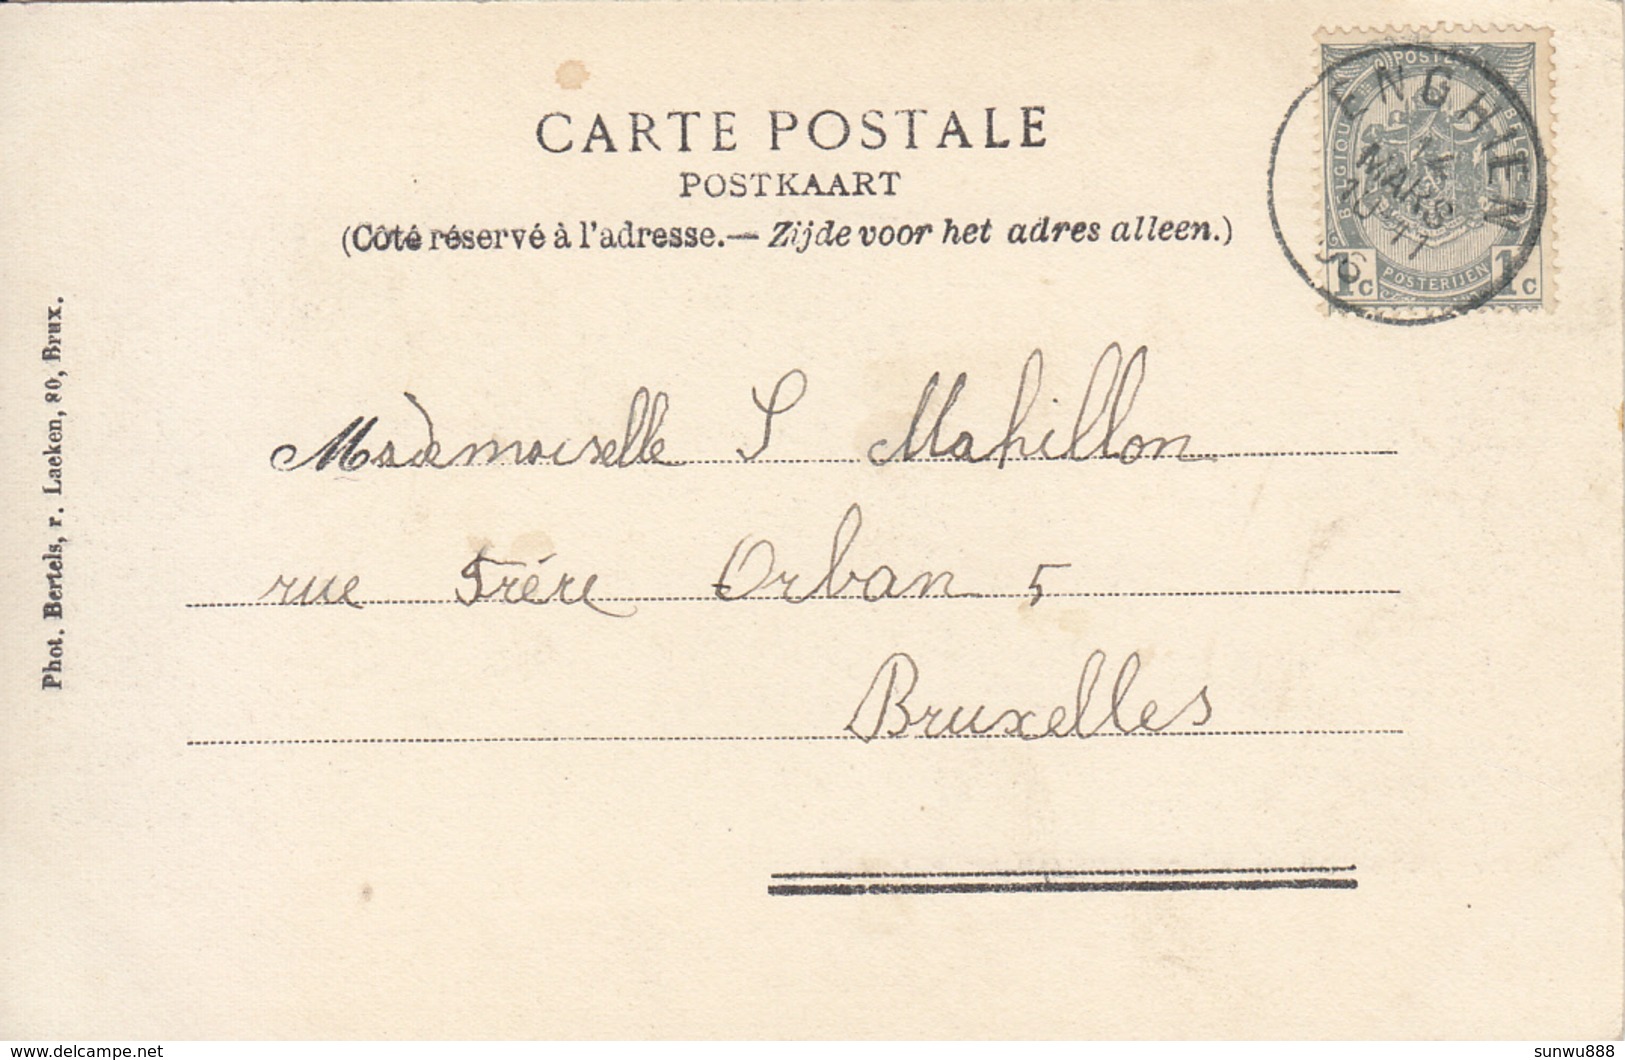 CARTE POSTALE
POSTKAART
(Côté réservé à l'adresse.— Zijde voor het adres alleen.)
ENGHIEN
14
MARS
10-11
06
POSTES
BELGIQUE
BELGIË
POSTERIJEN
1c 1c
Mademoiselle S Mahillon
rue Frére Orban 5
Bruxelles
Phot. Bertels, r. Laeken, 80, Brux.
delcampe.net
sunwu888